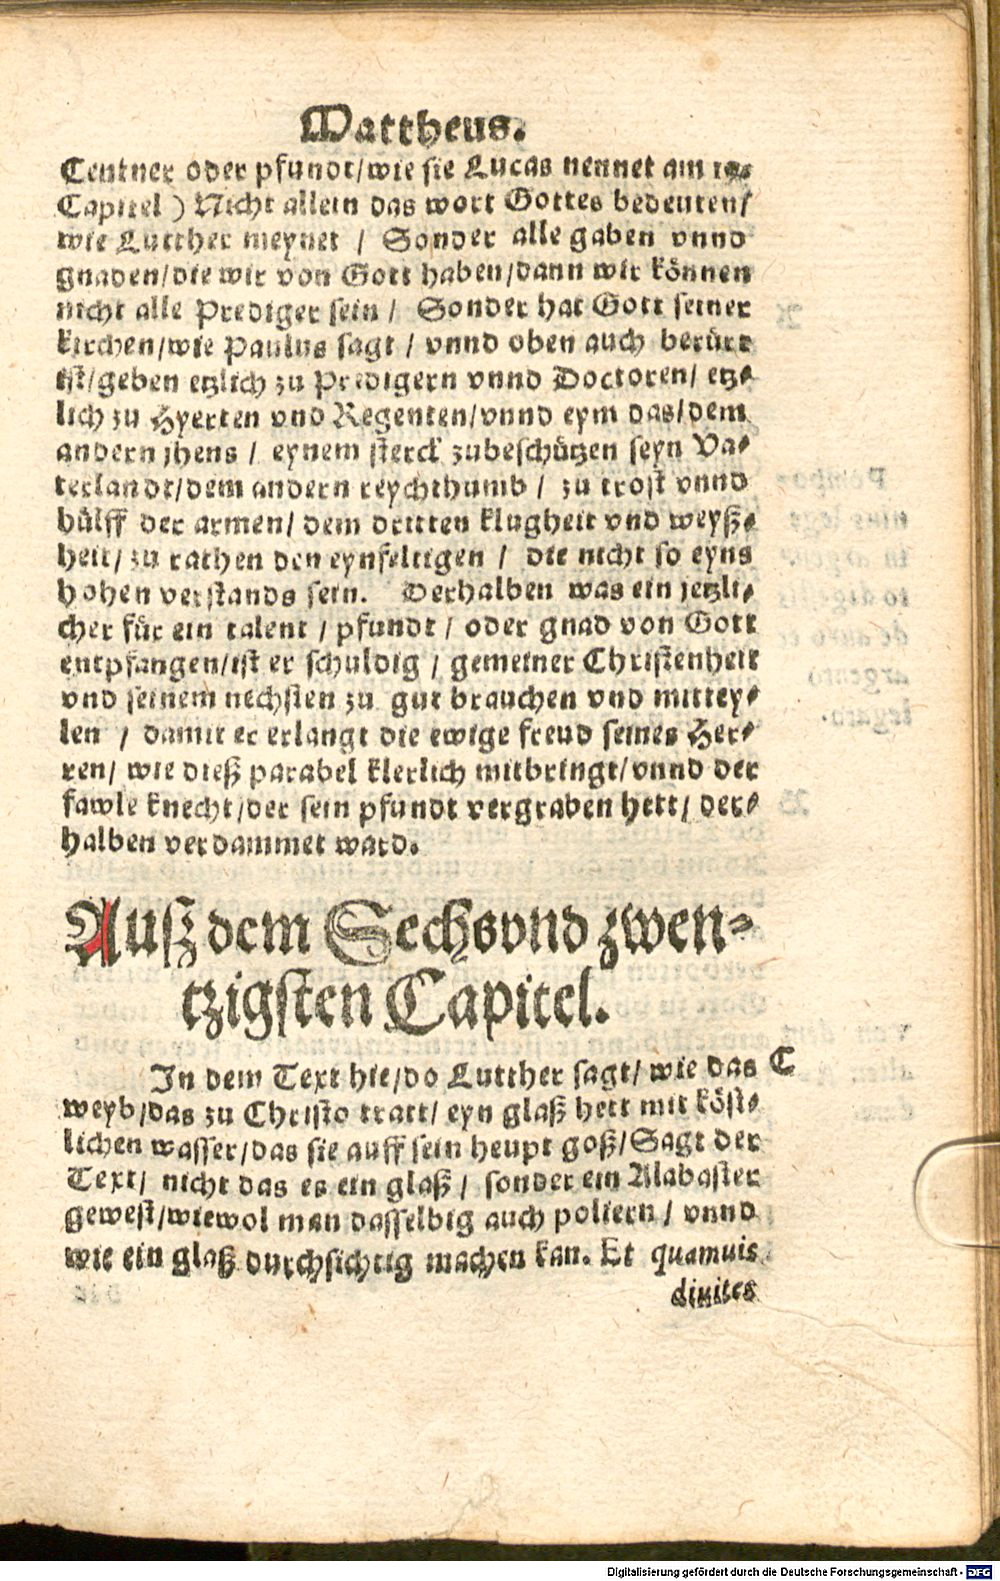 Mattheus.
Centner oder pfundt/wie sie Lucas nennet am 19.
Capitel ) Nicht allein das wort Gottes bedeuten/
wie Lutther meynet / Sonder alle gaben vnnd
gnaden/die wir von Gott haben/dann wir können
nicht alle Prediger sein / Sonder hat Gott seiner
kirchen/wie Paulus sagt / vnnd oben auch berürt
ist/geben etzlich zu Predigern vnnd Doctoren/ etz-
lich zu Hyerten vnd Regenten/vnnd eym das/dem
andern jhens / eynem sterck zubeschützen seyn Va-
terlandt/dem andern reychthumb / zu trost vnnd
hülff der armen/ dem dritten klugheit vnd weyß-
heit/ zu rathen den eynfeltigen / die nicht so eyns
hohen verstands sein. Derhalben was ein jetzli-
cher für ein talent / pfundt / oder gnad von Gott
entpfangen/ist er schuldig / gemeiner Christenheit
vnd seinem nechsten zu gut brauchen vnd mittey-
len / damit er erlangt die ewige freud seines Her-
ren/ wie dieß parabel klerlich mitbringt/vnnd der
fawle knecht/der sein pfundt vergraben hett/ der-
halben verdammet ward.
Auß dem Sechsvnd zwen-
tzigsten Capitel.
In dem Text hie/do Lutther sagt/ wie das C
weyb/das zu Christo tratt/ eyn glaß hett mit köst-
lichen wasser/das sie auff sein heupt goß/Sagt der
Text/ nicht das es ein glaß / sonder ein Alabaster
gewest/wiewol man dasselbig auch poliern / vnnd
wie ein glaß durchsichtig machen kan. Et quamuis
diuites
Digitalisierung gefördert durch die Deutsche Forschungsgemeinschaft - DFG